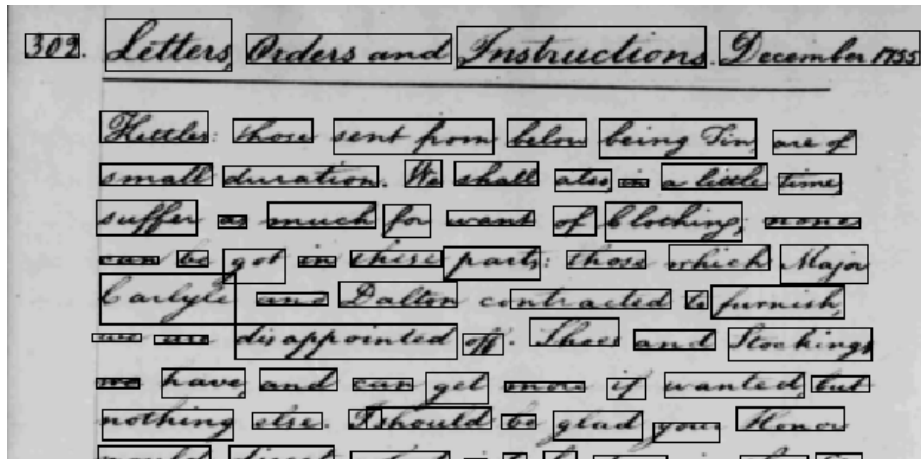 302. Letters, Orders and Instructions. December 1755
Kettles: those sent from below being Tin, are of
small duration. We shall also, in a little time,
suffer as much for want of Clothing; none
can be got in these parts: those which Major
Carlyle and Dalton contracted to furnish,
we are disappointed off. Shoes and Stockings
we have, and can get more if wanted, but
nothing else. I should be glad your Honor
would direct what is to be